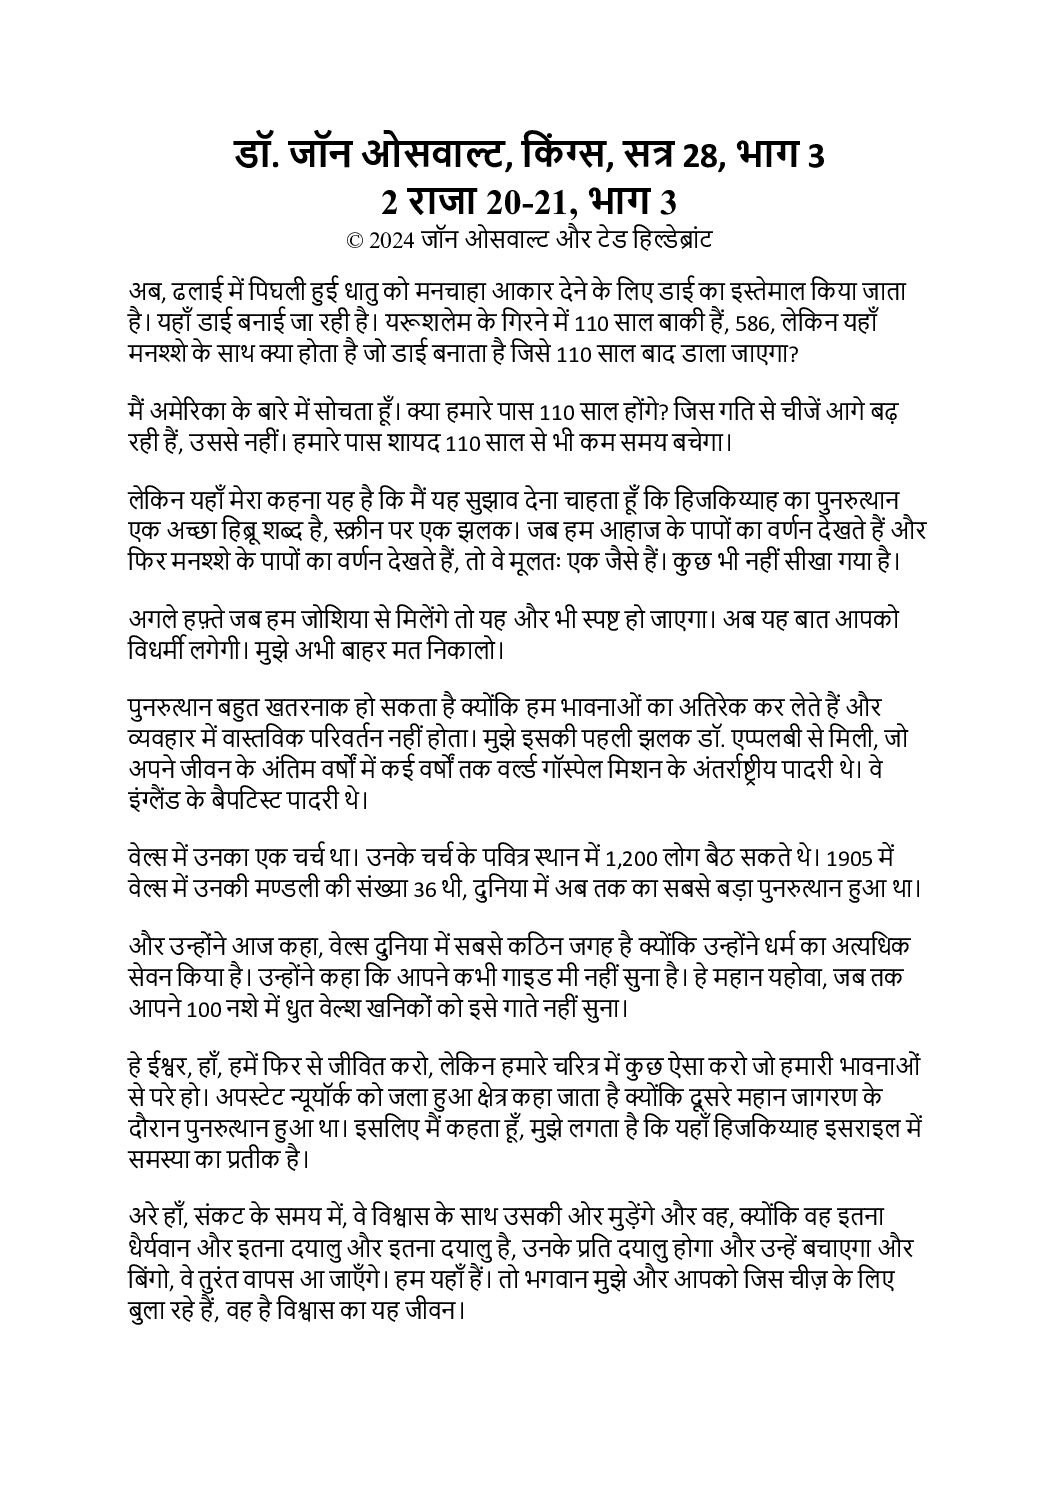 डॉ. जॉन ओसवाल्ट, किंग्स, सत्र 28, भाग 3
2 राजा 20-21, भाग 3
© 2024 जॉन ओसवाल्ट और टेड हिल्डेब्रांट
अब, ढलाई में पिघली हुई धातु को मनचाहा आकार देने के लिए डाई का इस्तेमाल किया जाता
है। यहाँ डाई बनाई जा रही है। यरूशलेम के गिरने में 110 साल बाकी हैं, 586, लेकिन यहाँ
मनश्शे के साथ क्या होता है जो डाई बनाता है जिसे 110 साल बाद डाला जाएगा?
मैं अमेरिका के बारे में सोचता हूँ। क्या हमारे पास 110 साल होंगे? जिस गति से चीजें आगे बढ़
रही हैं, उससे नहीं। हमारे पास शायद 110 साल से भी कम समय बचेगा।
लेकिन यहाँ मेरा कहना यह है कि मैं यह सुझाव देना चाहता हूँ कि हिजकिय्याह का पुनरुत्थान
एक अच्छा हिब्रू शब्द है, स्क्रीन पर एक झलक। जब हम आहाज के पापों का वर्णन देखते हैं और
फिर मनश्शे के पापों का वर्णन देखते हैं, तो वे मूलतः एक जैसे हैं। कुछ भी नहीं सीखा गया है।
अगले हफ़्ते जब हम जोशिया से मिलेंगे तो यह और भी स्पष्ट हो जाएगा। अब यह बात आपको
विधर्मी लगेगी। मुझे अभी बाहर मत निकालो।
पुनरुत्थान बहुत खतरनाक हो सकता है क्योंकि हम भावनाओं का अतिरेक कर लेते हैं और
व्यवहार में वास्तविक परिवर्तन नहीं होता। मुझे इसकी पहली झलक डॉ. एप्पलबी से मिली, जो
अपने जीवन के अंतिम वर्षों में कई वर्षों तक वर्ल्ड गॉस्पेल मिशन के अंतर्राष्ट्रीय पादरी थे। वे
इंग्लैंड के बैपटिस्ट पादरी थे।
वेल्स में उनका एक चर्च था। उनके चर्च के पवित्र स्थान में 1,200 लोग बैठ सकते थे। 1905 में
वेल्स में उनकी मण्डली की संख्या 36 थी, दुनिया में अब तक का सबसे बड़ा पुनरुत्थान हुआ था।
और उन्होंने आज कहा, वेल्स दुनिया में सबसे कठिन जगह है क्योंकि उन्होंने धर्म का अत्यधिक
सेवन किया है। उन्होंने कहा कि आपने कभी गाइड मी नहीं सुना है। हे महान यहोवा, जब तक
आपने 100 नशे में धुत वेल्श खनिकों को इसे गाते नहीं सुना।
हे ईश्वर, हाँ, हमें फिर से जीवित करो, लेकिन हमारे चरित्र में कुछ ऐसा करो जो हमारी भावनाओं
से परे हो। अपस्टेट न्यूयॉर्क को जला हुआ क्षेत्र कहा जाता है क्योंकि दूसरे महान जागरण के
दौरान पुनरुत्थान हुआ था। इसलिए मैं कहता हूँ, मुझे लगता है कि यहाँ हिजकिय्याह इसराइल में
समस्या का प्रतीक है।
अरे हाँ, संकट के समय में, वे विश्वास के साथ उसकी ओर मुड़ेंगे और वह, क्योंकि वह इतना
धैर्यवान और इतना दयालु और इतना दयालु है, उनके प्रति दयालु होगा और उन्हें बचाएगा और
बिंगो, वे तुरंत वापस आ जाएँगे। हम यहाँ हैं। तो भगवान मुझे और आपको जिस चीज़ के लिए
बुला रहे हैं, वह है विश्वास का यह जीवन।